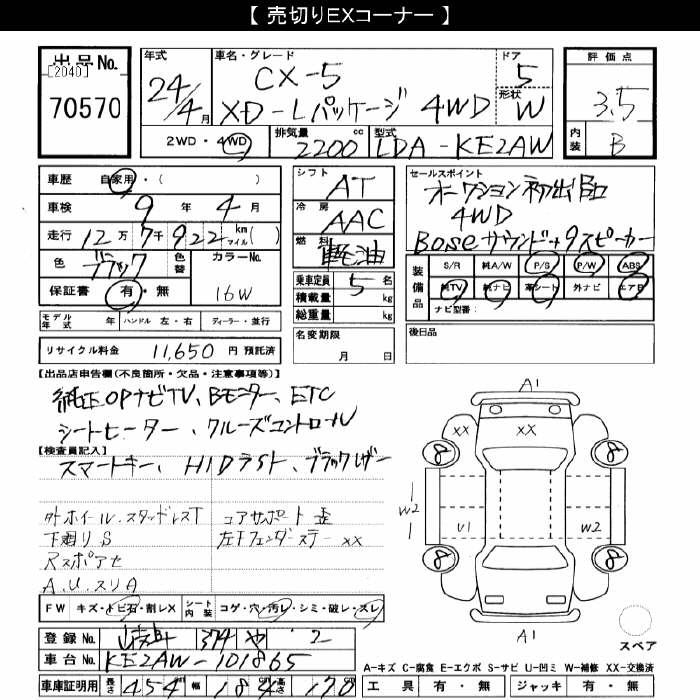 【 売切りEXコーナー 】
出品No.
[2040]
70570
年式
24/4月
車名・グレード
CX-5
XD-Lパッケージ 4WD
ドア
5
形状
W
評価点
3.5
内装
B
2WD・4WD
排気量
2200 cc
型式
LDA-KE2AW
車歴 自家用・( )
車検 9年 4月
走行 12万7千922 km マイル( )
色 ブラック 色替
カラーNo.
16W
保証書 有・無
シフト
AT
冷房
AAC
燃料
軽油
乗車定員 5名
積載量 kg
総重量 kg
セールスポイント
4WD
Boseサウンド+9スピーカー
装備品
S/R 純A/W P/S P/W ABS
純TV 純ナビ 革シート 外ナビ エアB
ナビ型番:
モデル年式 年 ハンドル 左・右 ディーラー・並行
名変期限
月 日
後日品
リサイクル料金 11,650 円 預託済
【出品店申告欄(不良箇所・欠品・注意事項等)】
純正OPナビTV、Bモニター、ETC
シートヒーター、クルーズコントロール
【検査員記入】
スマートキー、HIDライト、ブラックレザー
外ホイール.スタッドレスT
コアサポート歪
下廻りS
左Fフェンダーステー xx
Rスポアセ
A.U.スリA
FW キズ・トビ石・割レX
シート内装 コゲ・穴・汚レ・シミ・破レ・スレ
登録No. 374 や 2
車台No. KE2AW-101865
車庫証明用 長さ 454 幅 184 高さ 170
A1
XX
XX
8
8
W2
U1
W2
8
8
A1
スペア
A-キズ C-腐食 E-エクボ S-サビ U-凹ミ W-補修 XX-交換済
工具 有・無 ジャッキ 有・無